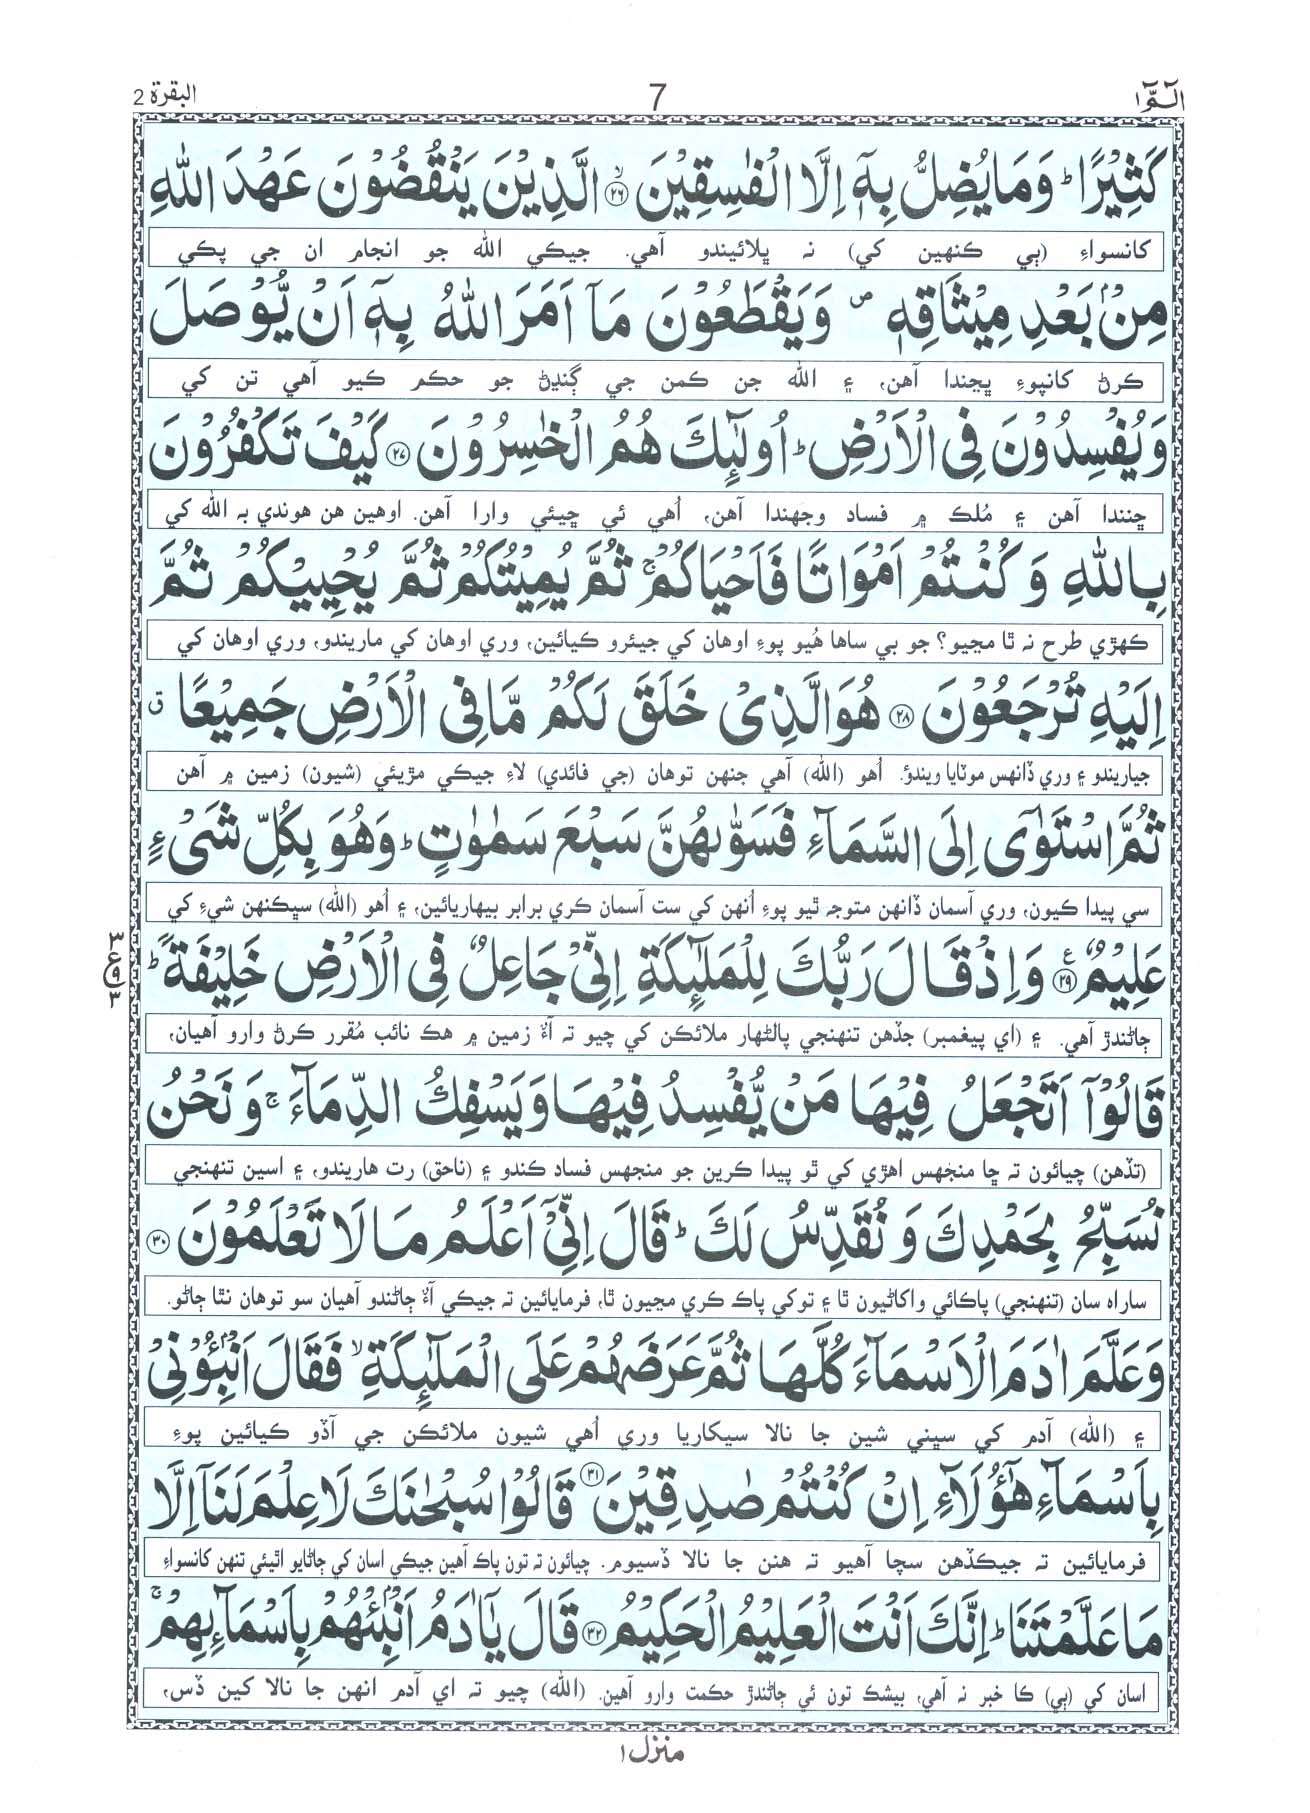 الٓمّٓ ١
7
البقرة 2
كَثِيْرًا ؕ وَمَا يُضِلُّ بِهٖٓ اِلَّا الْفٰسِقِيْنَ ۙ﴿۲۶﴾ الَّذِيْنَ يَنْقُضُوْنَ عَهْدَ اللّٰهِ
کانسواءِ (ٻي ڪنهين کي) نہ ڀلائيندو آهي۔ جيڪي الله جو انجام ان جي پڪي
مِنْۢ بَعْدِ مِيْثَاقِهٖ ۪ وَيَقْطَعُوْنَ مَآ اَمَرَ اللّٰهُ بِهٖٓ اَنْ يُّوْصَلَ
ڪرڻ کانپوءِ ڀڃندا آهن، ۽ الله جن ڪمن جي ڳنڍڻ جو حڪم ڪيو آهي تن کي
وَيُفْسِدُوْنَ فِى الْاَرْضِ ؕ اُولٰٓئِكَ هُمُ الْخٰسِرُوْنَ ﴿۲۷﴾ كَيْفَ تَكْفُرُوْنَ
ڇنندا آهن ۽ مُلڪ ۾ فساد وجهندا آهن، اُهي ئي ڇيئي وارا آهن. اوهين هن هوندي بہ الله کي
بِاللّٰهِ وَكُنْتُمْ اَمْوَاتًا فَاَحْيَاكُمْ ۚ ثُمَّ يُمِيْتُكُمْ ثُمَّ يُحْيِيْكُمْ ثُمَّ
ڪهڙي طرح نہ ٿا مڃيو؟ جو بي ساها هُيو پوءِ اوهان کي جيئرو ڪيائين، وري اوهان کي ماريندو، وري اوهان کي
اِلَيْهِ تُرْجَعُوْنَ ﴿۲۸﴾ هُوَ الَّذِىْ خَلَقَ لَكُمْ مَّا فِى الْاَرْضِ جَمِيْعًا ۗ
جياريندو ۽ وري ڏانهس موٽايا ويندؤ. اُهو (الله) آهي جنهن توهان (جي فائدي) لاءِ جيڪي مڙيئي (شيون) زمين ۾ آهن
ثُمَّ اسْتَوٰٓى اِلَى السَّمَآءِ فَسَوّٰىهُنَّ سَبْعَ سَمٰوٰتٍ ؕ وَهُوَ بِكُلِّ شَىْءٍ
سي پيدا ڪيون، وري آسمان ڏانهن متوجہ ٿيو پوءِ اُنهن کي ست آسمان ڪري برابر بيهاريائين، ۽ اُهو (الله) سڀڪنهن شيءِ کي
عَلِيْمٌ ﴿۲۹﴾ وَاِذْ قَالَ رَبُّكَ لِلْمَلٰٓئِكَةِ اِنِّىْ جَاعِلٌ فِى الْاَرْضِ خَلِيْفَةً ؕ
ڄاڻندڙ آهي. ۽ (اي پيغمبر) جڏهن تنهنجي پالڻهار ملائڪن کي چيو تہ آءٌ زمين ۾ هڪ نائب مُقرر ڪرڻ وارو آهيان،
قَالُوْٓا اَتَجْعَلُ فِيْهَا مَنْ يُّفْسِدُ فِيْهَا وَيَسْفِكُ الدِّمَآءَ ۚ وَنَحْنُ
(تڏهن) چيائون تہ ڇا منجهس اهڙي کي ٿو پيدا ڪرين جو منجهس فساد ڪندو ۽ (ناحق) رت هاريندو، ۽ اسين تنهنجي
نُسَبِّحُ بِحَمْدِكَ وَنُقَدِّسُ لَكَ ؕ قَالَ اِنِّىْٓ اَعْلَمُ مَا لَا تَعْلَمُوْنَ ﴿۳۰﴾
ساراه سان (تنهنجي) پاڪائي واکاڻيون ٿا ۽ توکي پاڪ ڪري مڃيون ٿا، فرمايائين تہ جيڪي آءٌ ڄاڻندو آهيان سو توهان نٿا ڄاڻو.
وَعَلَّمَ اٰدَمَ الْاَسْمَآءَ كُلَّهَا ثُمَّ عَرَضَهُمْ عَلَى الْمَلٰٓئِكَةِ ۙ فَقَالَ اَنْۢبِـُٔوْنِىْ
۽ (الله) آدم کي سڀني شين جا نالا سيکاريا وري اُهي شيون ملائڪن جي آڏو ڪيائين پوءِ
بِاَسْمَآءِ هٰٓؤُلَآءِ اِنْ كُنْتُمْ صٰدِقِيْنَ ﴿۳۱﴾ قَالُوْا سُبْحٰنَكَ لَا عِلْمَ لَنَآ اِلَّا
فرمايائين تہ جيڪڏهن سچا آهيو تہ هنن جا نالا ڏسيوم. چيائون تہ تون پاڪ آهين جيڪي اسان کي ڄاڻايو اٿيئي تنهن کانسواءِ
مَا عَلَّمْتَنَا ؕ اِنَّكَ اَنْتَ الْعَلِيْمُ الْحَكِيْمُ ﴿۳۲﴾ قَالَ يٰٓاٰدَمُ اَنْۢبِئْهُمْ بِاَسْمَآئِهِمْ ۚ
اسان کي (ٻي) ڪا خبر نہ آهي، بيشڪ تون ئي ڄاڻندڙ حڪمت وارو آهين. (الله) چيو تہ اي آدم انهن جا نالا کين ڏس،
منزل ١